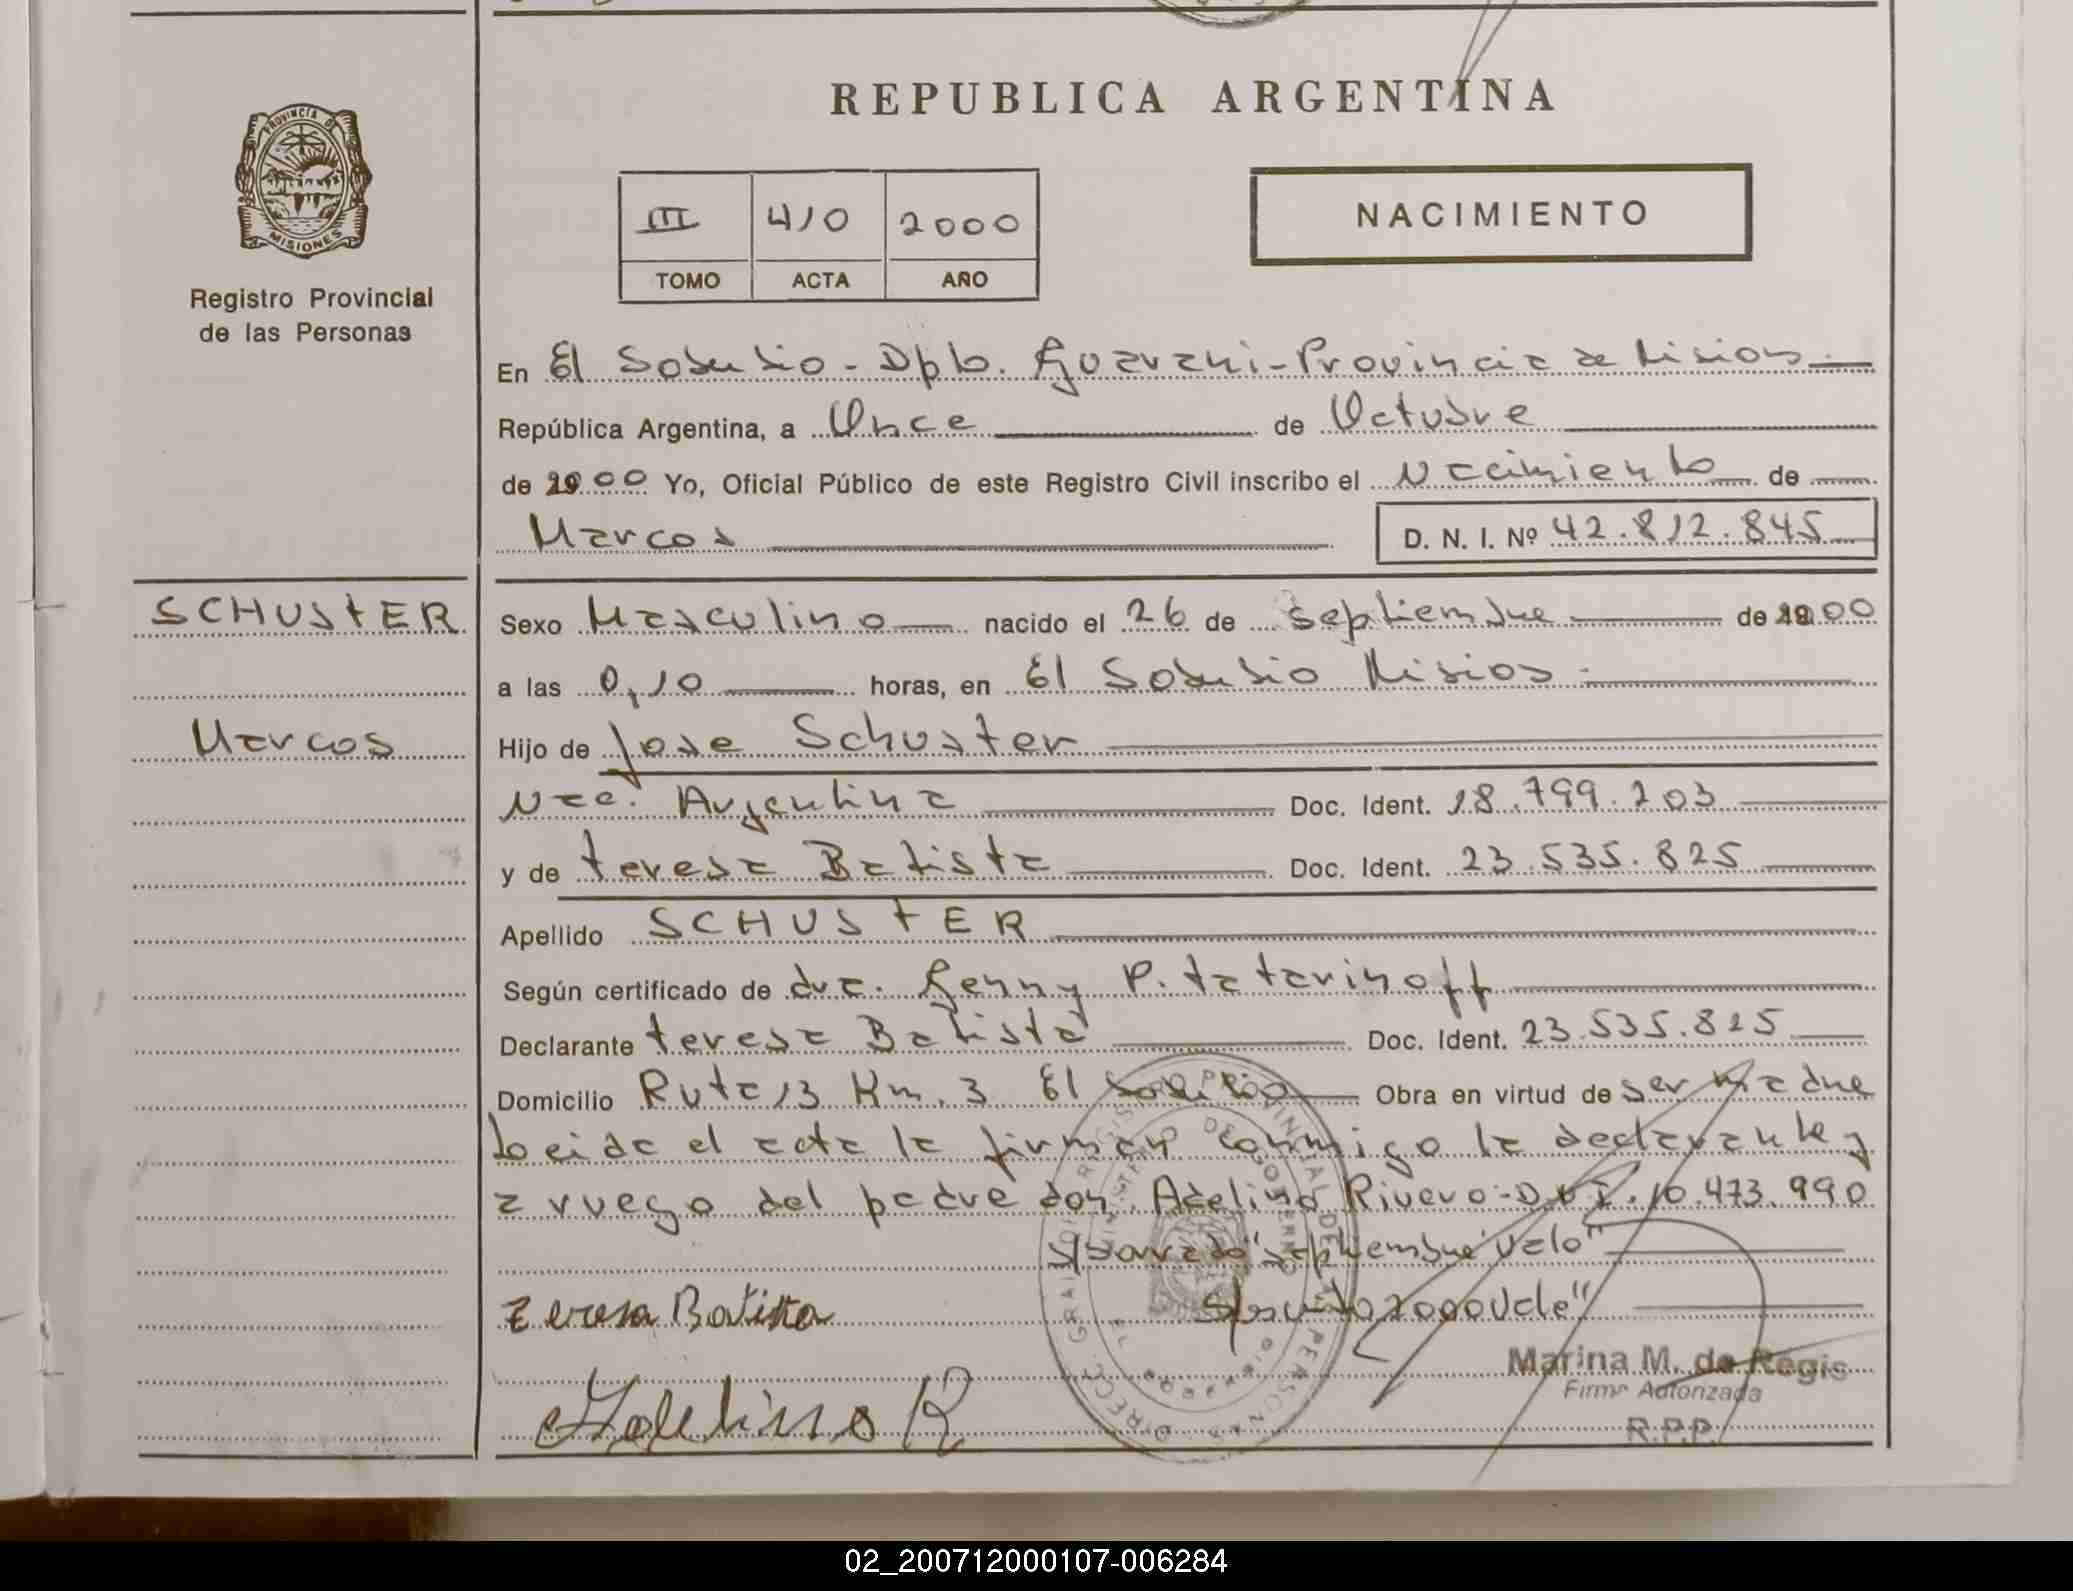 REPUBLICA ARGENTINA
PROVINCIA DE
MISIONES
Registro Provincial
de las Personas
III 410 2000
TOMO ACTA AÑO
NACIMIENTO
En El Soberbio - Dpto. Guarani - Provincia de Misiones
República Argentina, a Once de Octubre
de 2000 Yo, Oficial Público de este Registro Civil inscribo el Nacimiento de
Marcos D. N. I. Nº 42.812.845
SCHUSTER
Marcos
Sexo Masculino nacido el 26 de septiembre de 2000
a las 0,10 horas, en El Soberbio Misios
Hijo de Jose Schuster
Nac. Argentina Doc. Ident. 18.799.203
y de teresa Batista Doc. Ident. 23.535.825
Apellido SCHUSTER
Según certificado de dra. Genny P. tatarinoff
Declarante teresa Batista Doc. Ident. 23.535.825
Domicilio Ruta 13 Km. 3 El Soberbio Obra en virtud de ser madre
Leida el acta la firman conmigo la declarante y
a ruego del padre don Adelino Rivero - D.N.I. 10.473.990
S/borrado "septiembre" Vale"
S/escrito 2000 Vale"
Teresa Batista
Adelino R
Marina M. de Regis
Firma Autorizada
R.P.P.
02_200712000107-006284